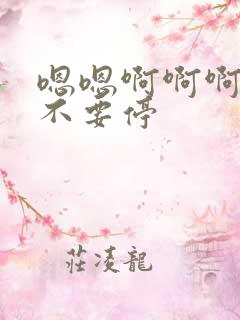 嗯嗯啊啊啊
不要停
莊凌龍